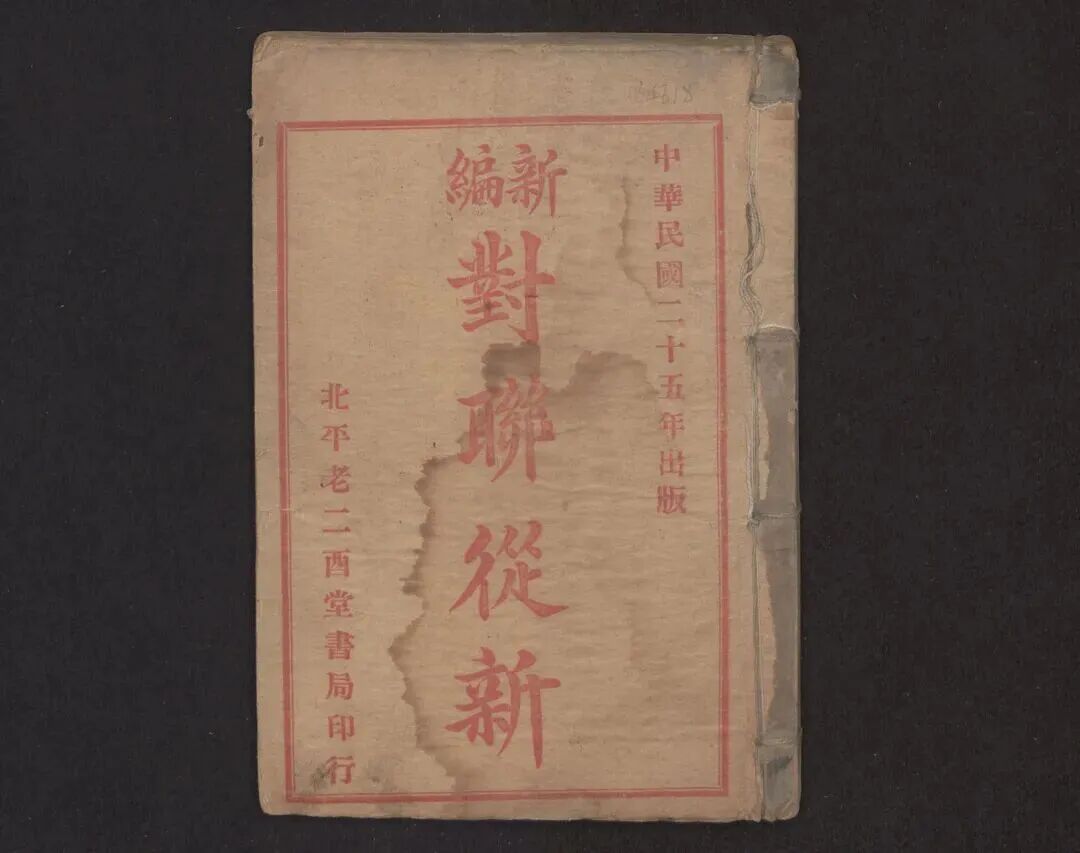 中華民國二十五年出版
新編
對聯從新
北平老二酉堂書局印行